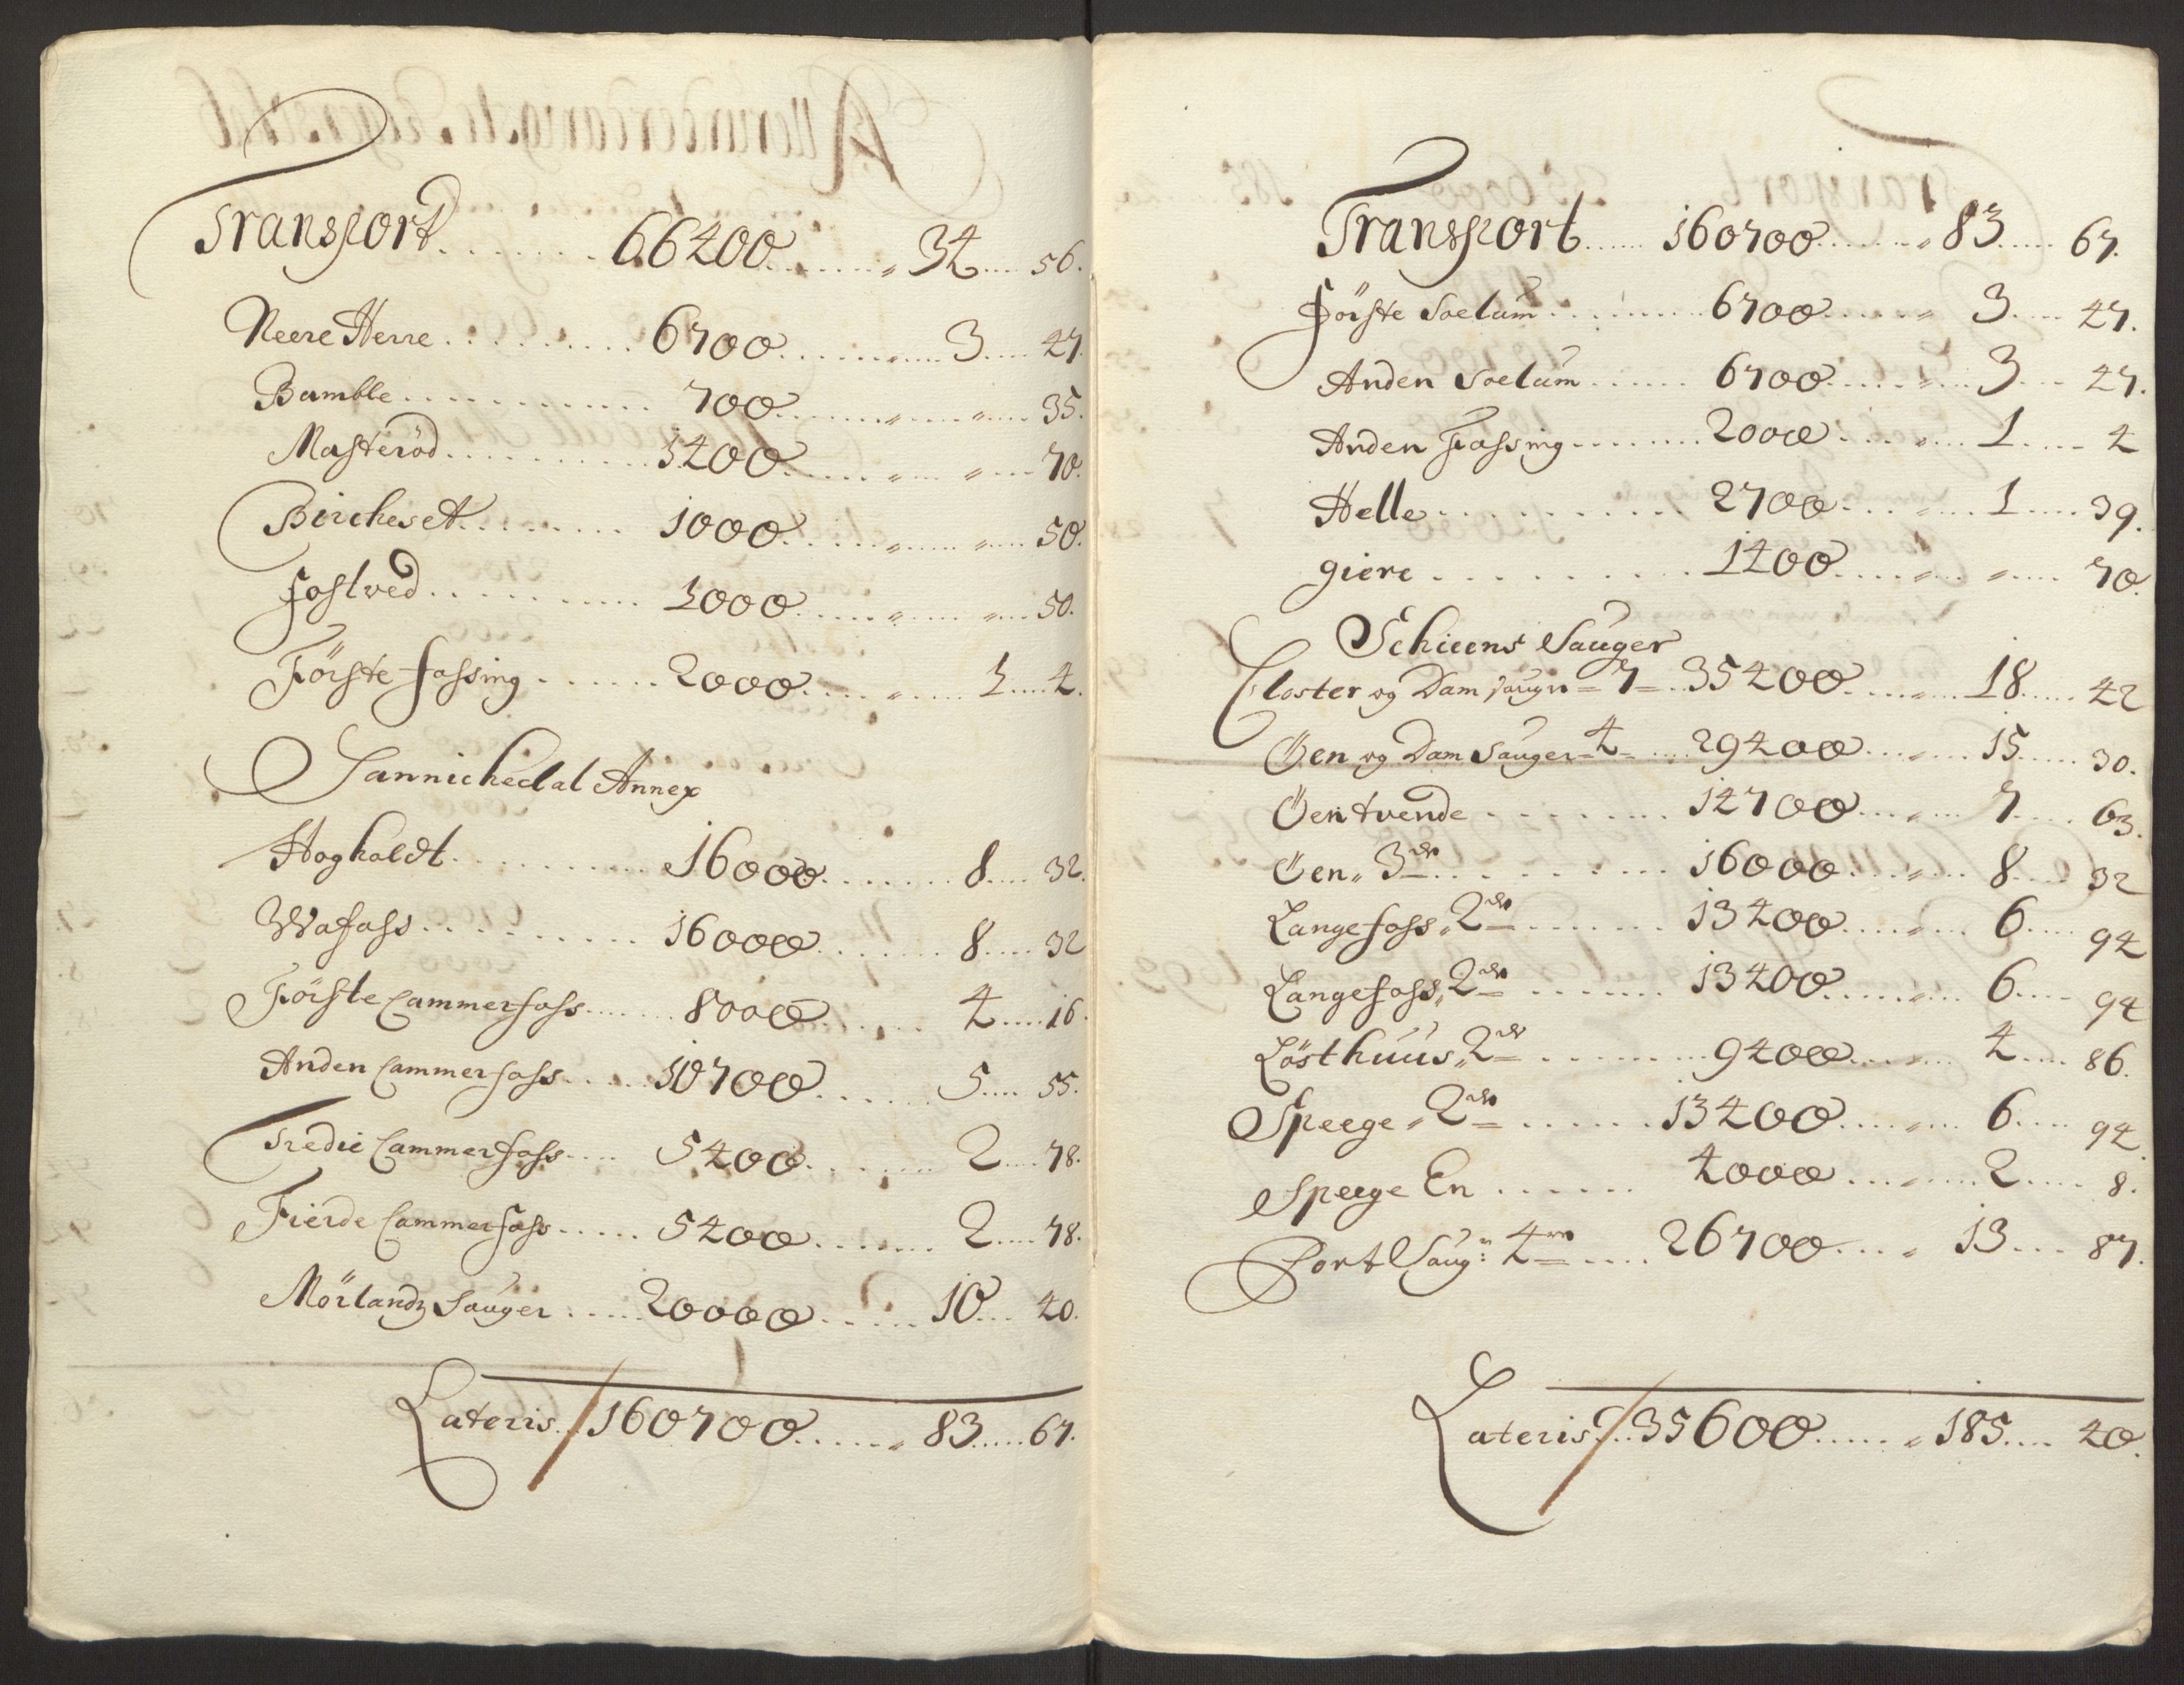 Transport 66400 " 34 56.
Neere Herre 6700 " 3 47.
Bamble 700 " " 35.
Masteröd 1400 " " 70.
Bircheset 1000 " " 50.
Fostved 1000 " " 50.
Förste Fossing 2000 " 1 4.
Sannichedal Annex
Hogholdt 16000 8 32.
Wafoss 16000 8 32
Förste Cammerfoss 8000 4 16.
Anden Cammerfoss 10700 5 55.
Tredie Cammerfoss 5400 2 78.
Fierde Cammerfoss 5400 2 78.
Mörlandz Sauger 20000 10 40.
Lateris 160700 " 83 67.
Transport 160700 " 83 67.
Förste Soelum 6700 " 3 47.
Anden Soelum 6700 " 3 47.
Anden Fossing 2000 " 1 4
Helle 2700 " 1 39.
giere 1400 " " 70.
Schiens Sauger
Closter og Dam saugr = 7 = 35400 " 18 42
Öen og Dam Sauger = 4 = 29400 " 15 30.
Öen tvende 14700 " 7 63.
Öen " 3de 16000 " 8 32
Langefoss " 2de 13400 " 6 94
Langefoss " 2de 13400 " 6 94
Lösthuus " 2de 9400 " 4 86.
Speege " 2de 13400 " 6 94.
Speege En 4000 " 2 8.
Fort Saug: 4re 26700 " 13 87.
Lateris 35600 " 185 40.